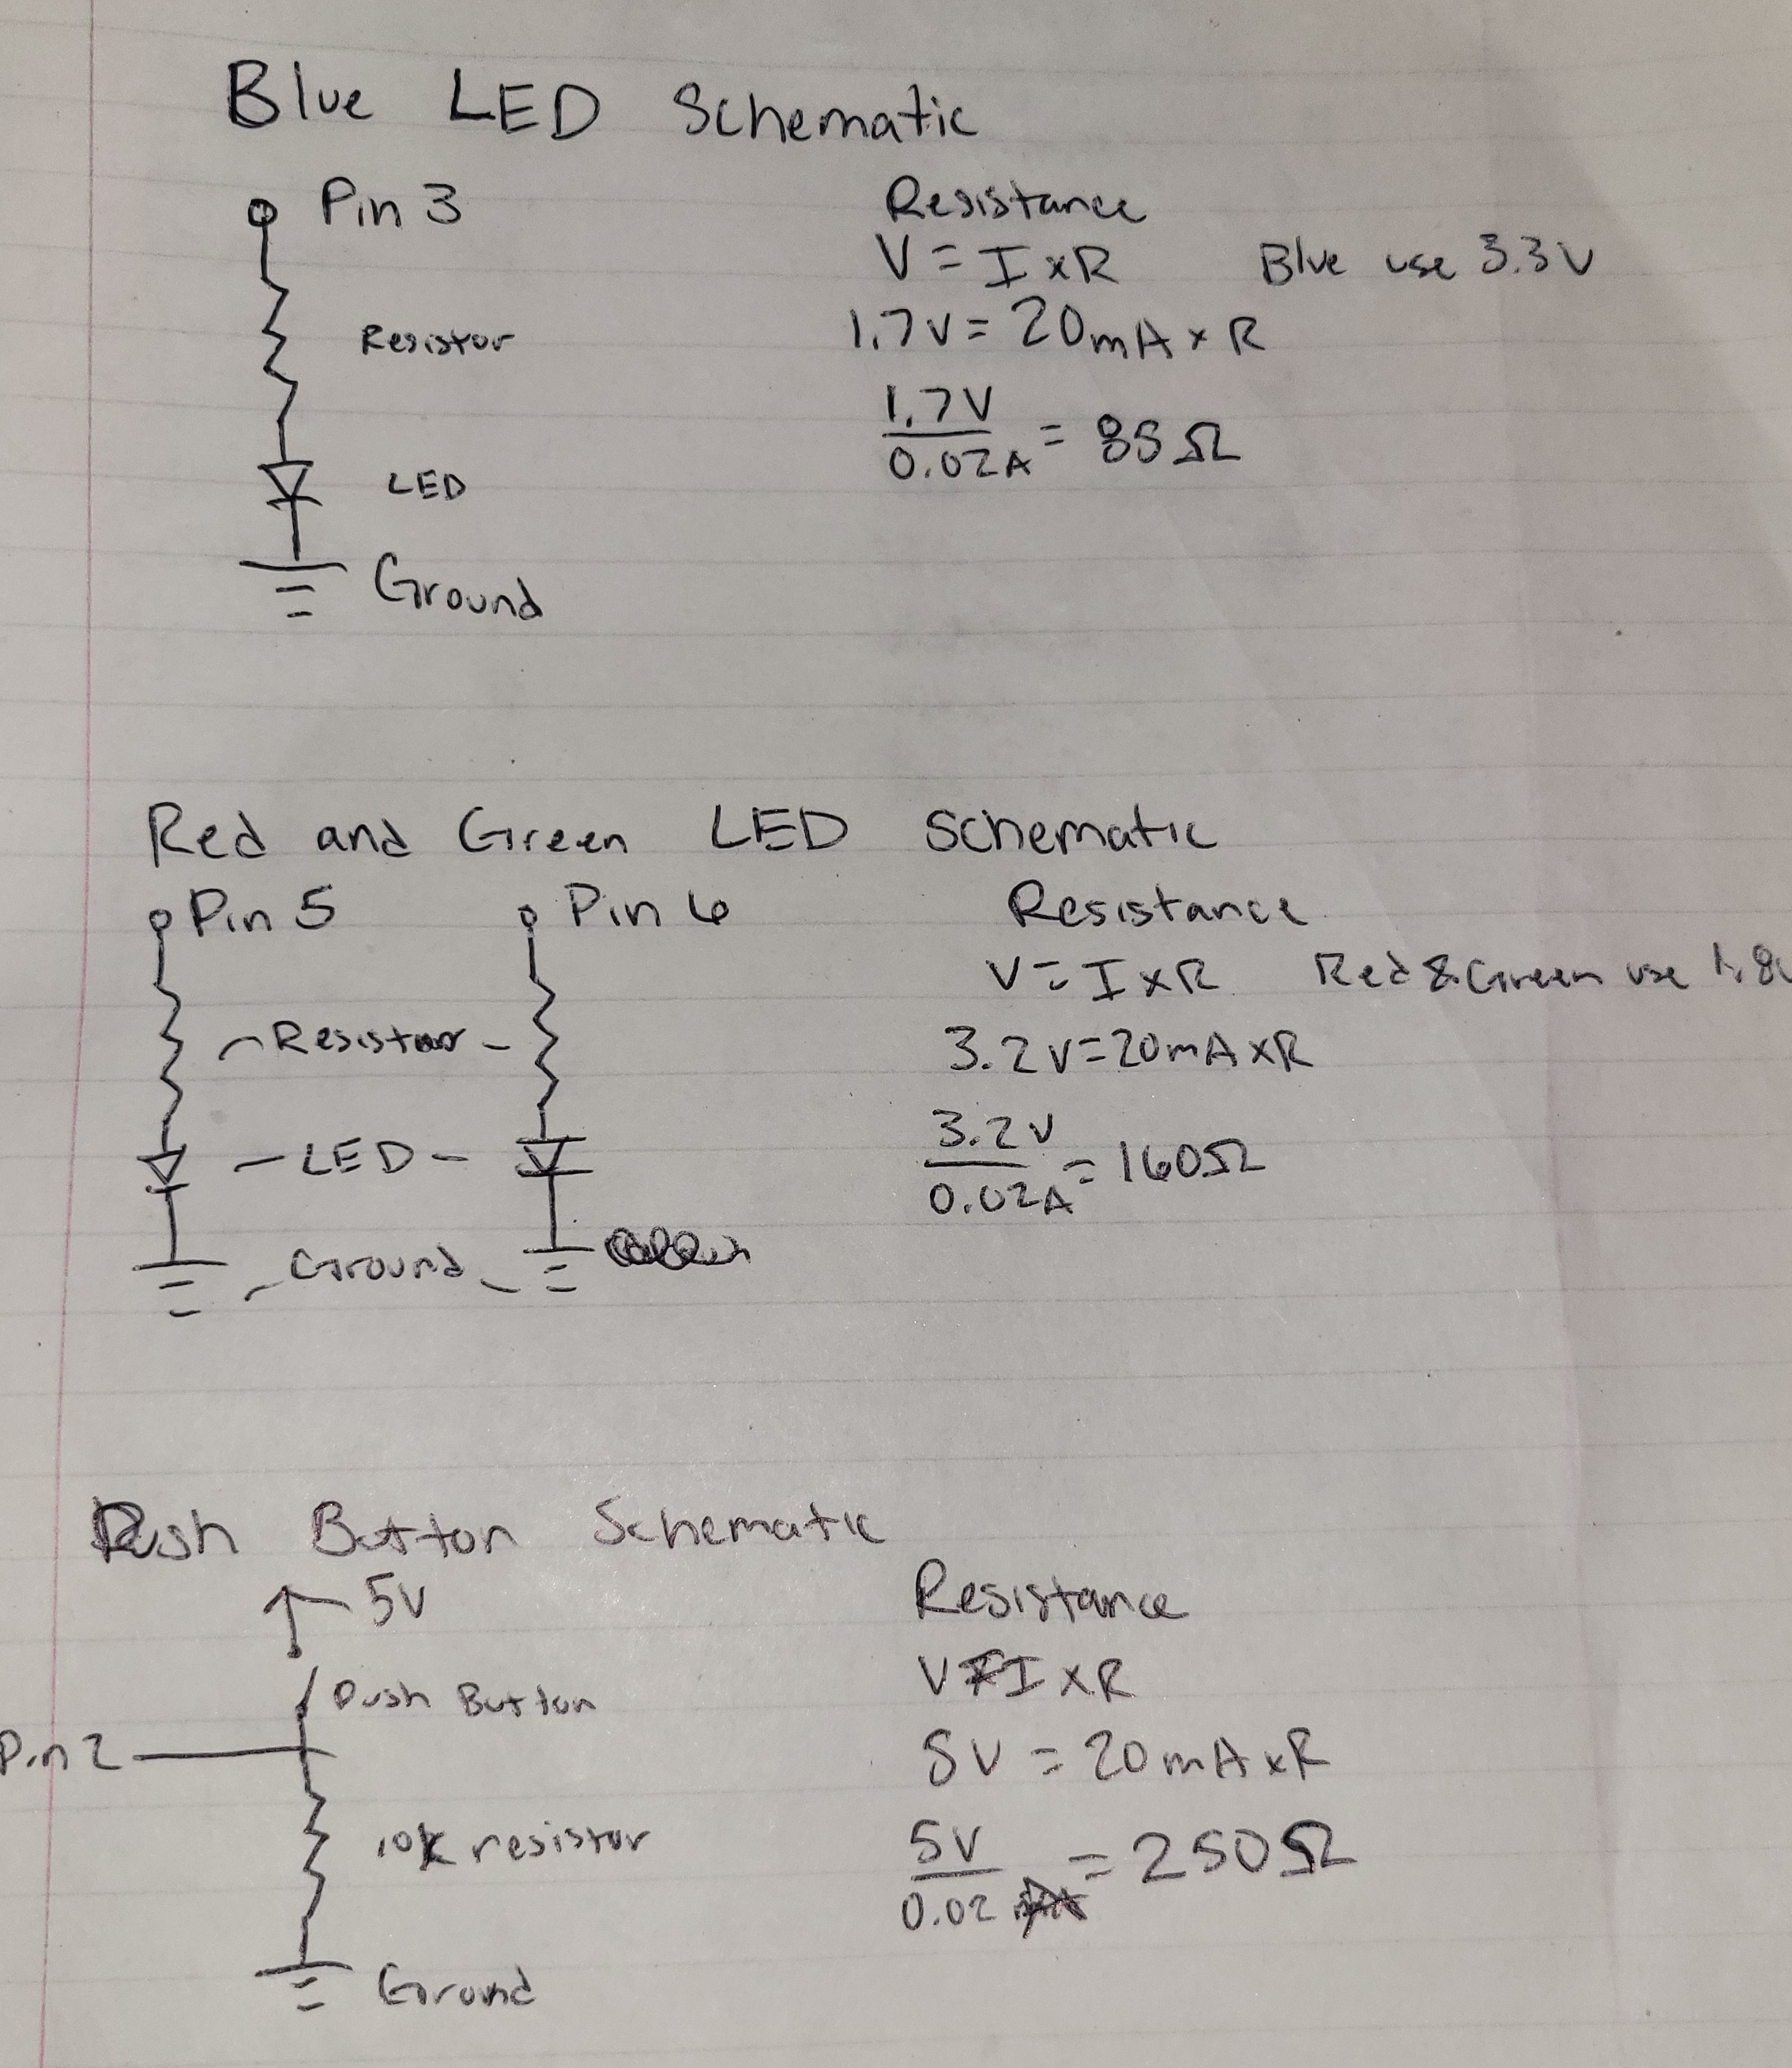 Blue LED Schematic
Pin 3
Resistor
LED
Ground
Resistance
V = I x R
Blue use 3.3V
1.7V = 20mA x R
1.7V
0.02A
= 85Ω
Red and Green LED Schematic
Pin 5
Pin 6
Resistor
LED
Ground
Resistance
V = I x R
Red & Green use 1.8
3.2V = 20mA x R
3.2V
0.02A
= 160Ω
Push Button Schematic
5V
Push Button
Pin 2
10k resistor
Ground
Resistance
V = I x R
5V = 20mA x R
5V
0.02
= 250Ω